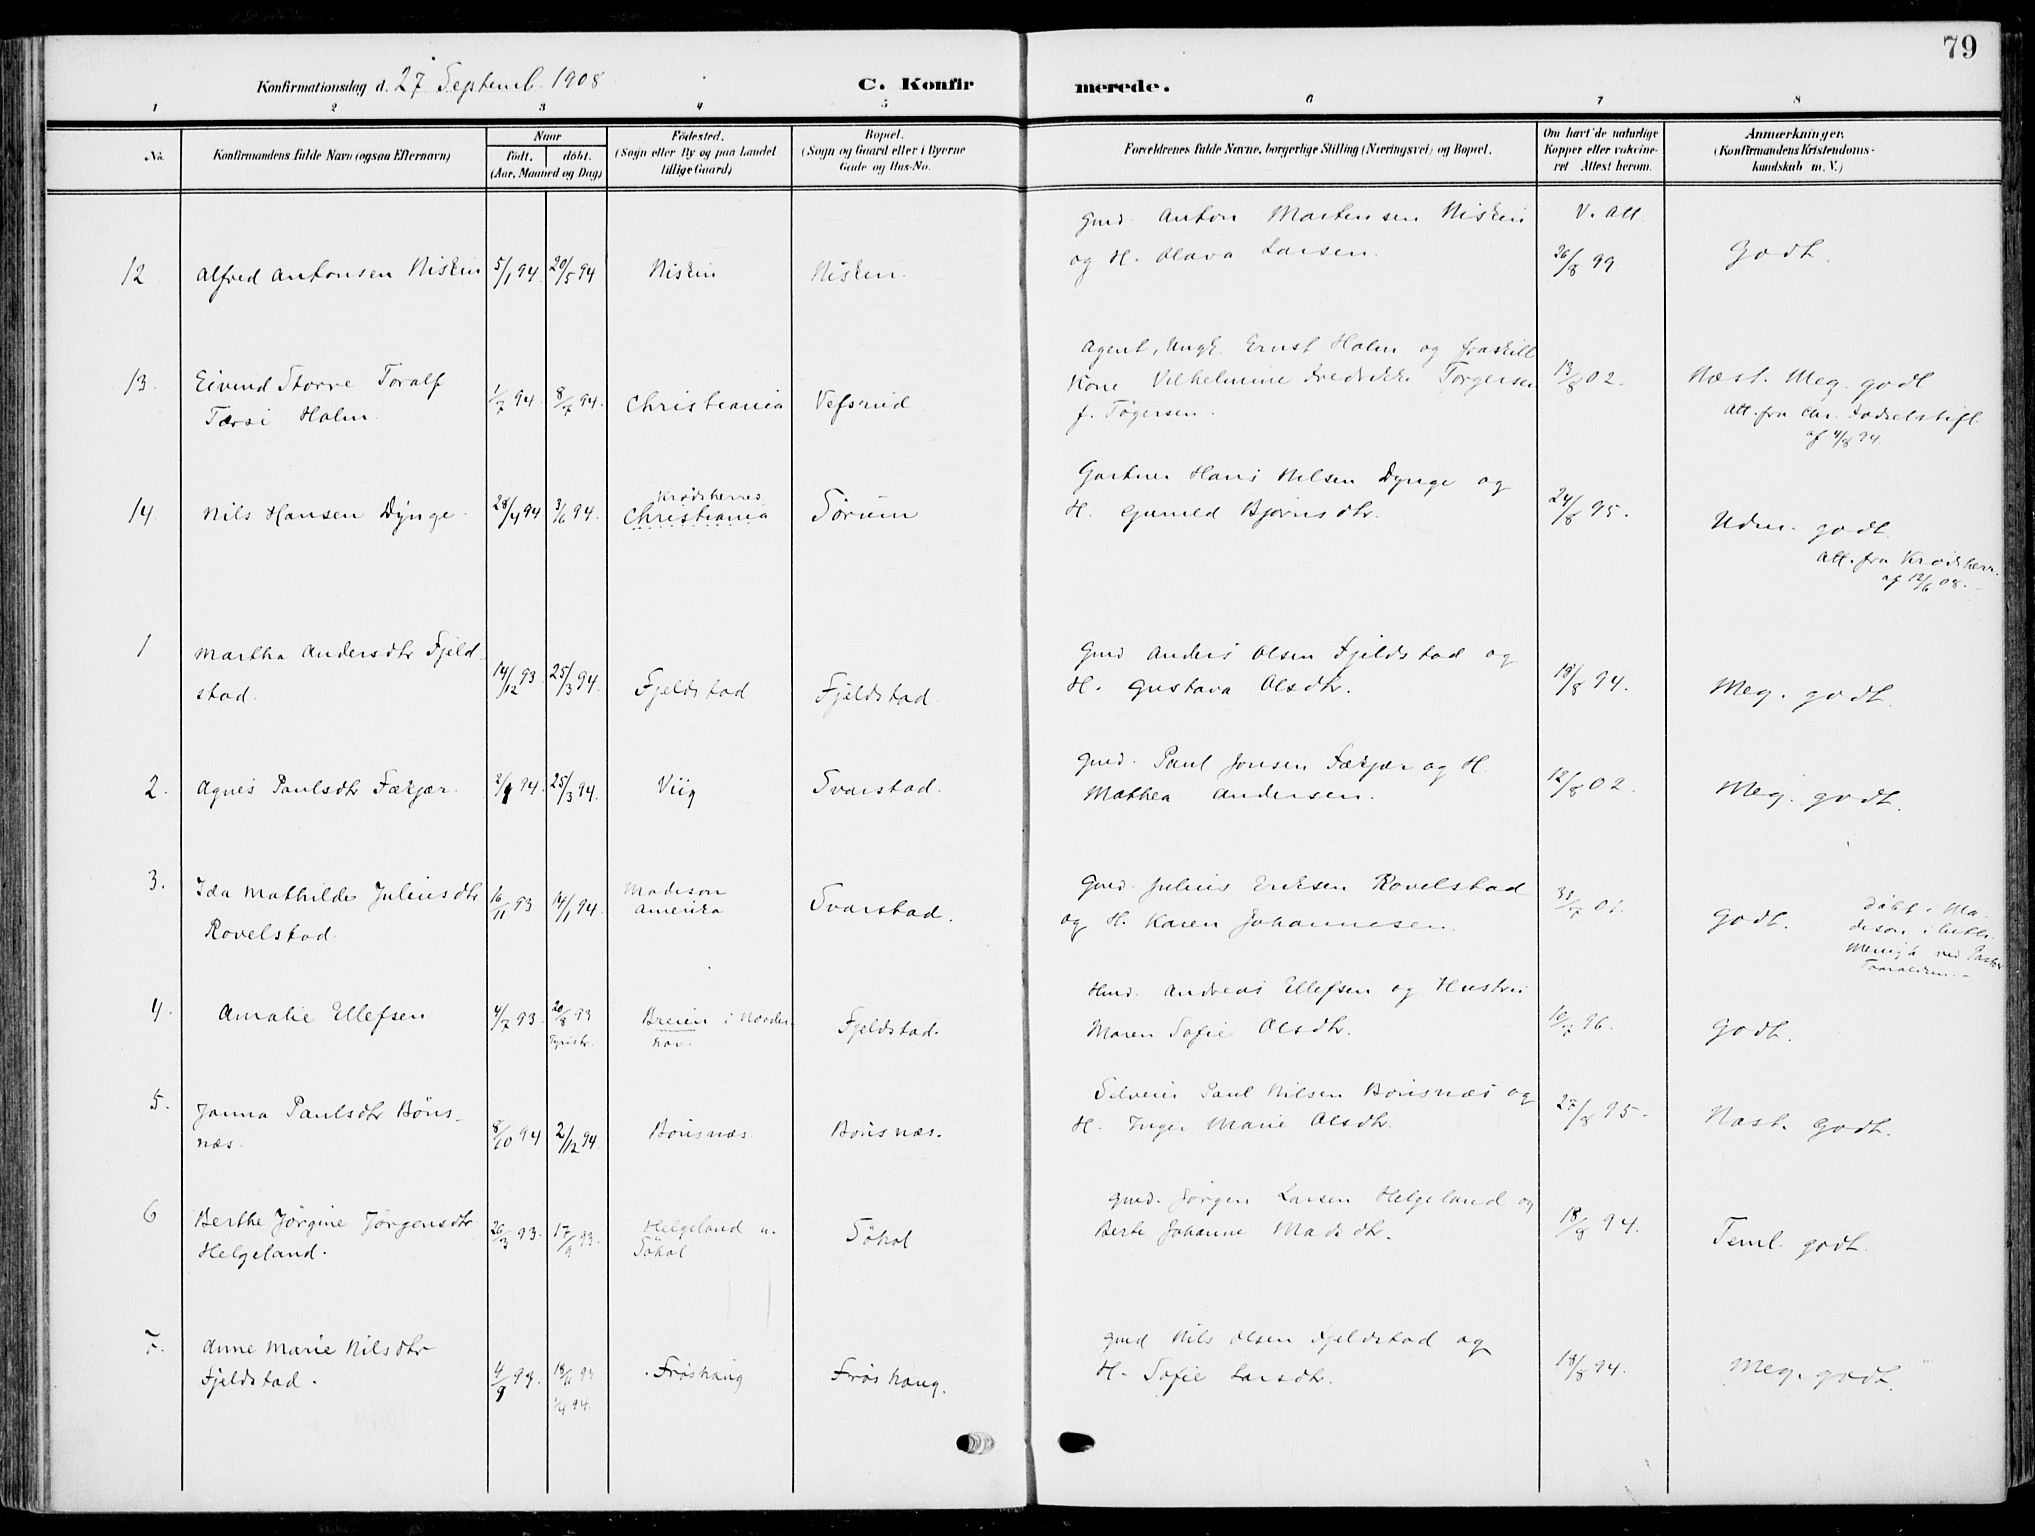 79
Konfirmationsdag d. 27 Septemb. 1908
C. Konfirmerede.
1 2 3 4 5 6 7 8
No.
Konfirmandens fulde Navn (ogsaa Efternavn)
Naar
født. døbt.
(Aar, Maaned og Dag)
Fødested.
(Sogn eller By og paa Landet
tillige Gaard)
Bopæl.
(Sogn og Gaard eller i Byerne
Gade og Hus-No.
Forældrenes fulde Navne, borgerlige Stilling (Næringsvei) og Bopæl.
Om havt de naturlige
Kopper eller vakcine-
ret Attest herom.
Anmærkninger.
(Konfirmandens Kristendoms-
kundskab m. V.)
Gmd. Anton Martensen Niskin V. Att.
og H. Olava Larsen. 26/8 99 Godt.
12 Alfred Antonsen Niskin 5/1 94 20/5 94 Niskin Nisken.
Agent, Ungk. Ernst Holm og fraskilt
13. Eivind Storre Toralf 1/7 94. 8/7 94. Christiania Vefsrud
Kone Vilhelmine Fredrikke Torgersen 13/8 02. Næst. Meg. godt
Tarsi Holm.
f. Tøgersen. Att. fra Chr. Fødselstift.
af 4/8 94
Gartner Hans Nilsen Dynge og
14. Nils Hansen Dynge. 28/4 94 3/6 94. Krødsherres Christiania Sørum
H. Gunild Bjørnsdtr. 24/8 95. Udm. godt.
Att. fra Krødsherr.
af 12/6 08.
1 Martha Andersdtr Fjeld-
stad. 14/12 93 25/3 94. Fjeldstad Fjeldstad.
Gmd Anders Olsen Fjeldstad og
H. Gustava Olsdtr. 18/8 94. Meg. godt.
2. Agnes Paulsdtr Fækjær. 2/1 94. 25/3 94. Viig Svarstad.
Gmd. Paul Jonsen Fækjær og H.
Mathea Andersen. 12/8 02. Meg. godt.
3. Ida Mathilde Juliusdtr
Rovelstad. 16/11 93 14/1 94. Madison
Amerika Svarstad.
Gmd. Julius Eriksen Rovelstad
og H. Karen Johannesen. 31/7 01. Godt. Døbt i Ma-
dison i luth.
Menigh. ved Pastor
4. Amalie Ellefsen 4/7 93. 20/8 93 Breien i Norder-
hov. Fjeldstad.
Hmd. Andreas Ellefsen og Hustru
Maren Sofie Olsdtr. 10/7 96. Godt.
5. Janna Paulsdtr Bøns-
næs. 8/10 94 2/12 94. Bønsnæs. Bønsnæs.
Selveier Paul Nilsen Bønsnæs og
H. Inger Marie Olsdtr. 27/8 95. Næst. Godt.
6 Berthe Jørgine Jørgensdtr
Helgeland. 26/3 93. 17/9 93. Helgeland u.
Søhol Søhol
Gmd. Jørgen Larsen Helgeland og
Berte Johanne Madsdtr. 18/8 94. Teml. godt.
7. Anne Marie Nilsdtr
Fjeldstad. 4/9 93. 18/11 93 Frøshaug Frøshaug.
1/4 94.
Gmd Nils Olsen Fjeldstad og
H. Sofie Larsdtr. 18/8 94. Meg. godt.